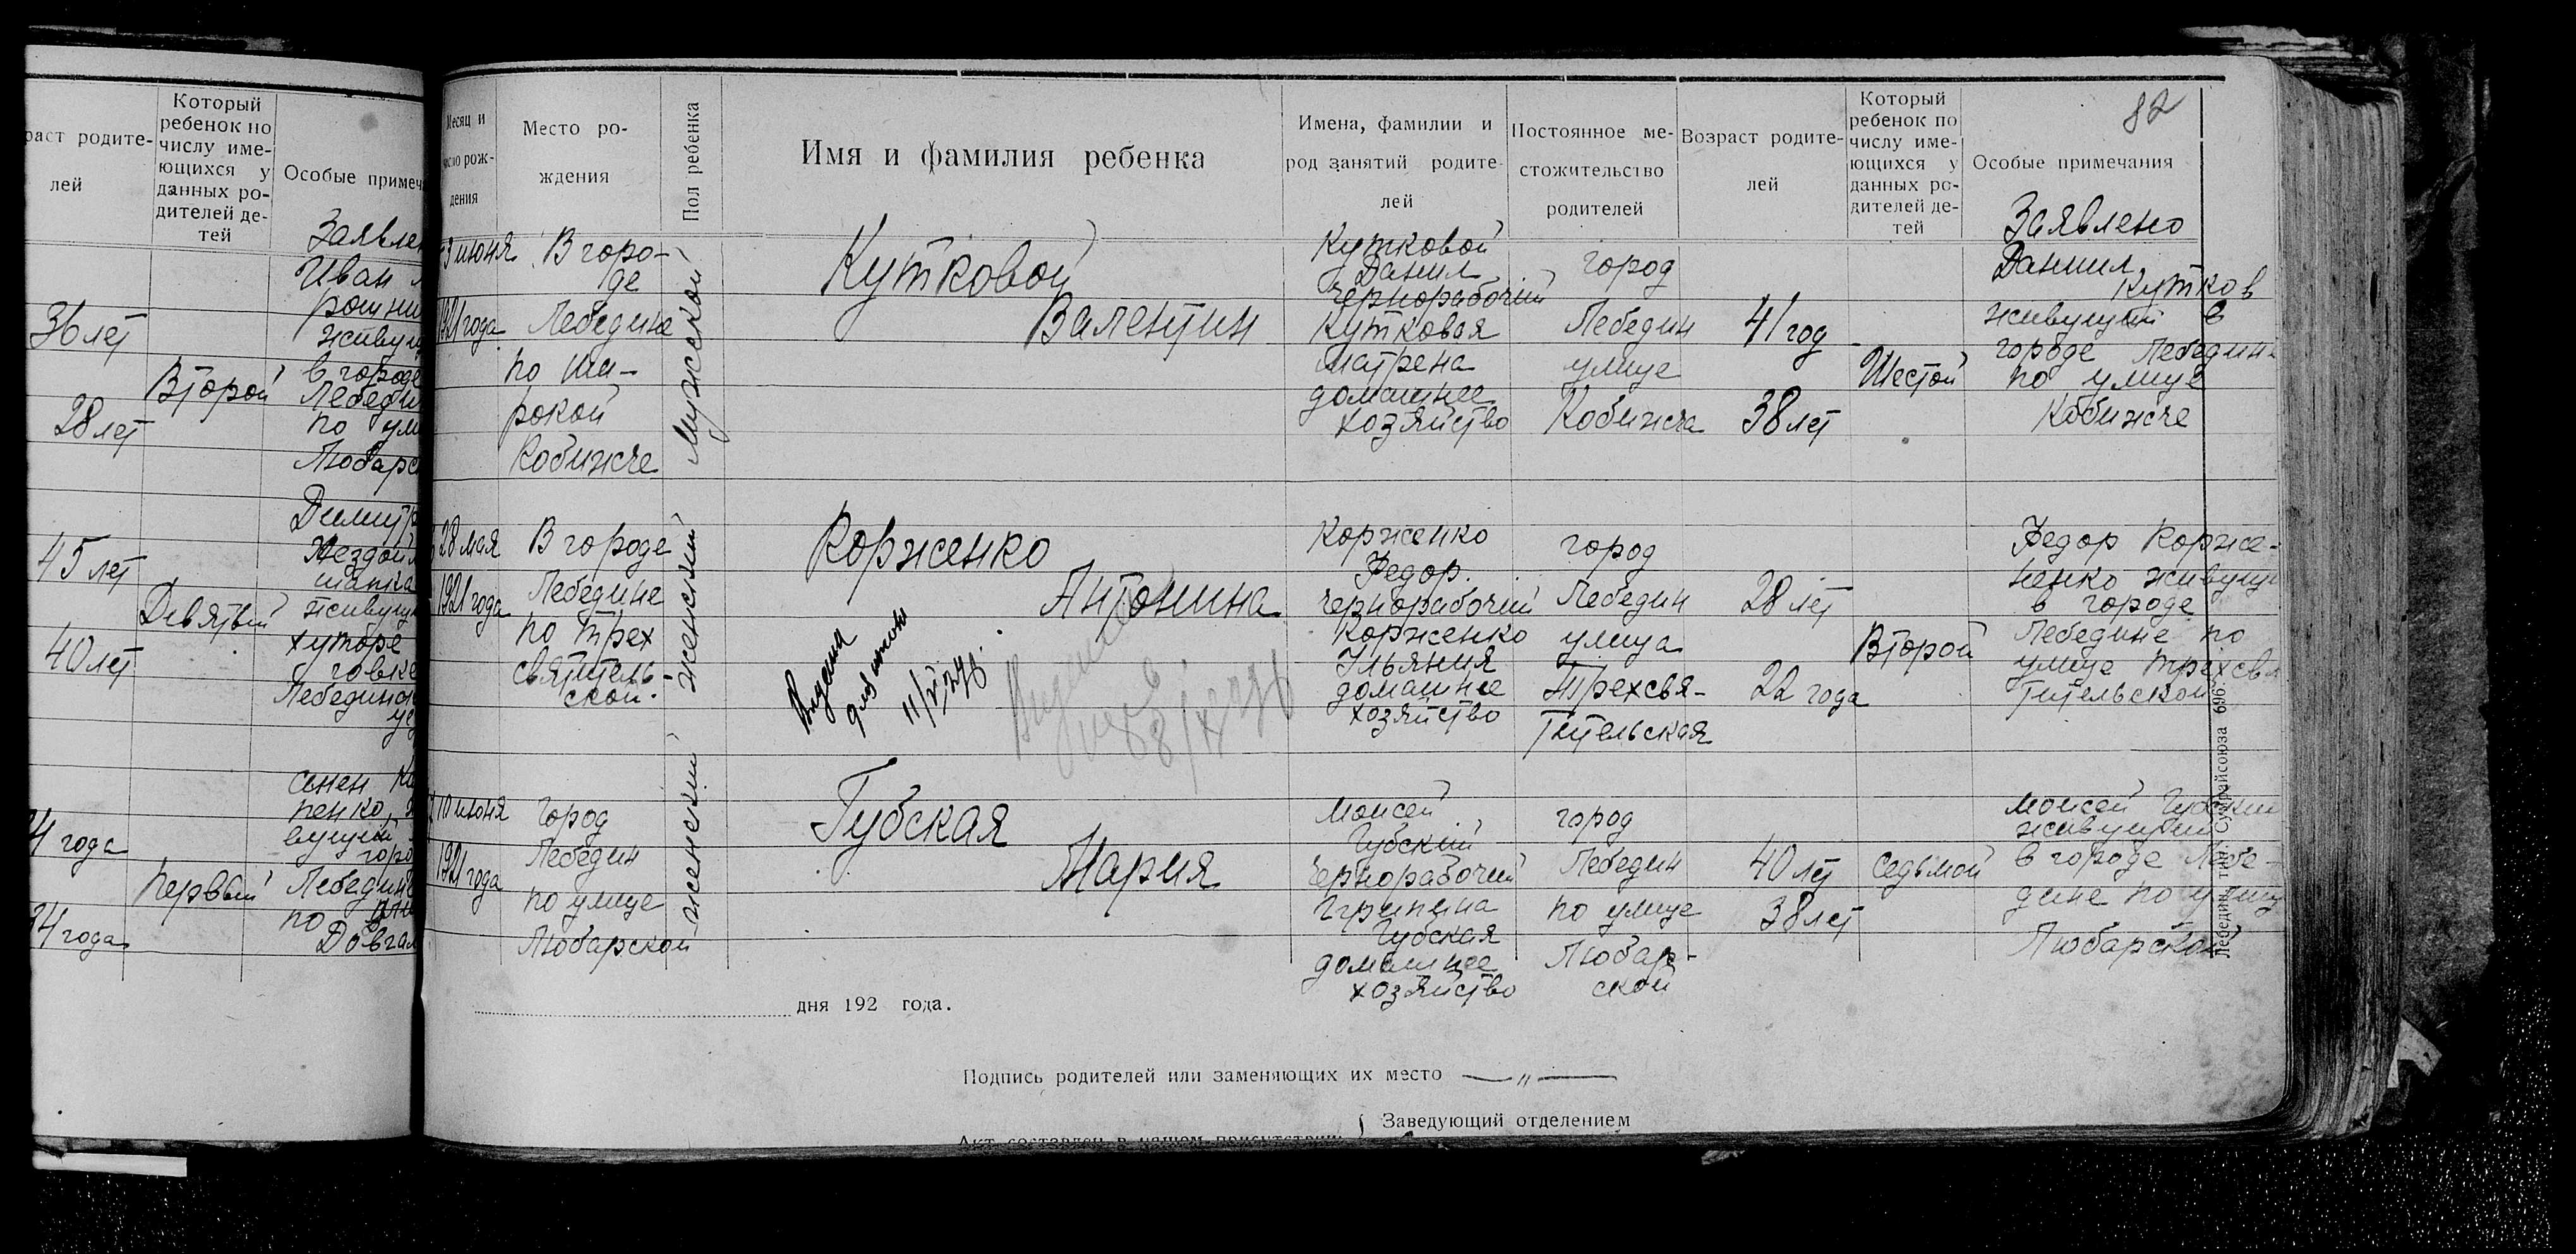 раст родите-
лей
Который
ребенок по
числу име-
ющихся у
данных ро-
дителей де-
тей
Особые примеч
Заявлен
Иван
36 лет
28 лет
Второй
живущ
в городе
Лебедин
по ули
Любарс
Димитр
45 лет
40 лет
Девятый
живущ
хуторе
Лебединс
Семен
пенко,
вущий
горо
4 года
4 года
Первый
Лебедине
по
Довгал
82
Месяц и
число рож-
дения
Место ро-
ждения
Пол ребенка
Имя и фамилия ребенка
Имена, фамилии и
род занятий родите-
лей
Постоянное ме-
стожительство
родителей
Возраст родите-
лей
Который
ребенок по
числу име-
ющихся у
данных ро-
дителей де-
тей
Особые примечания
Заявлено
3 июня
1921 года
В горо-
де
Лебедине
по Ши-
рокой
Кобижче
Мужской
Кутковой
Валентин
Кутковой
Данил
чернорабочий
Кутковая
Матрена
домашнее
хозяйство
город
Лебедин
улице
Кобижча
41 год
38 лет
Шестой
Даниил
Кутков
живущий в
городе Лебедин
по улице
Кобижче
28 мая
1921 года
В городе
Лебедине
по Трех
святитель-
ской.
женский
Корженко
Антонина
Выдана
11/V 27г.
Корженко
Федор.
чернорабочий
Корженко
Ульяния
домашнее
хозяйство
город
Лебедин
улица
Трехсвя-
тительская
28 лет
22 года
Второй
Федор Корже-
ненко живущи
в городе
Лебедине по
улице Трехсвя
тительской
10 июня
1921 года
город
Лебедин
по улице
Любарской
женский
Губская
Мария
Моисей
Губский
чернорабочий
Ггрипина
Губская
домашнее
хозяйство
город
Лебедин
по улице
Любар-
ской
40 лет
38 лет
Седьмой
Моисей Губский
живущий
в городе Лебе-
дине по улиц
Любарской
Лебедин, тип. Сумрайсоюза 696.
дня 192 года.
Подпись родителей или заменяющих их место —„—
Акт составлен в нашем присутствии
Заведующий отделением